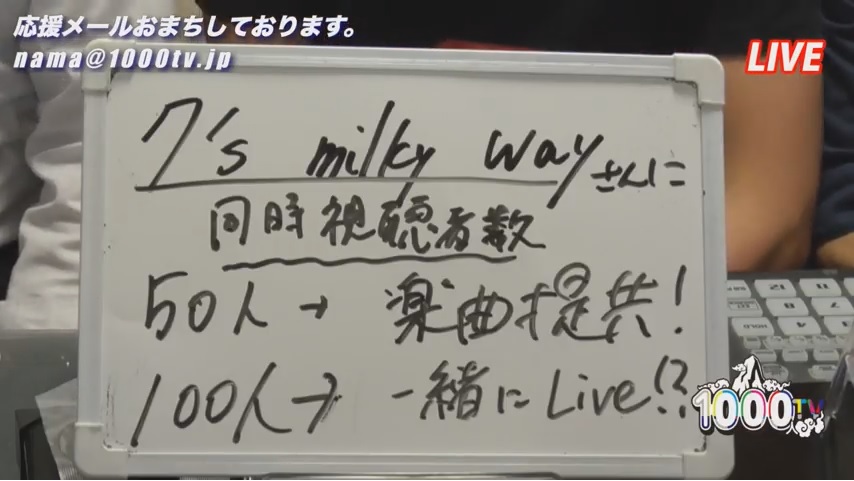 応援メールおまちしております。
nama@1000tv.jp
LIVE
7's milky wayさんに
同時視聴者数
50人→楽曲提共!
100人→一緒にLive!?
1000TV